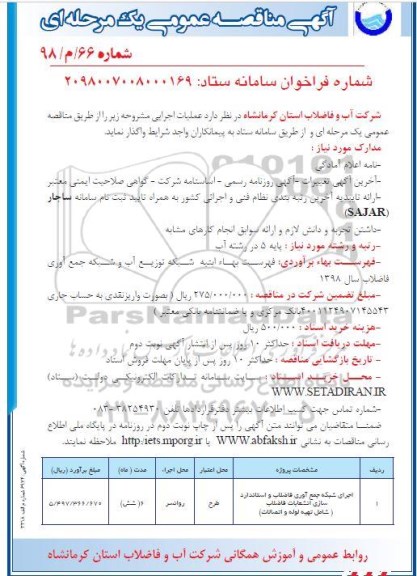 آگهی مناقصه عمومی یک مرحله ای
شماره ۶۶/م/۹۸
شماره فراخوان سامانه ستاد: ۲۰۹۸۰۰۷۰۰۸۰۰۰۱۶۹
شرکت آب و فاضلاب استان کرمانشاه در نظر دارد عملیات اجرایی مشروحه زیر را از طریق مناقصه
عمومی یک مرحله ای و از طریق سامانه ستاد به پیمانکاران واجد شرایط واگذار نماید.
مدارک مورد نیاز :
-نامه اعلام آمادگی
-آخرین آگهی تغییرات -آگهی روزنامه رسمی - اساسنامه شرکت - گواهی صلاحیت ایمنی معتبر
-ارائه تاییدیه آخرین رتبه بندی نظام فنی و اجرائی کشور به همراه تایید ثبت نام سامانه ساجار
(SAJAR)
-داشتن تجربه و دانش لازم و ارائه سوابق انجام کارهای مشابه
-رتبه و رشته مورد نیاز : پایه ۵ در رشته آب
-فهرست بهاء برآوردی: فهرست بهاء ابنیه شبکه توزیع آب و شبکه جمع آوری
فاضلاب سال ۱۳۹۸
-مبلغ تضمین شرکت در مناقصه : ۲۷۵/۰۰۰/۰۰۰ ریال ( بصورت واریز نقدی به حساب جاری
بانک مرکزی و یا ضمانتنامه بانکی معتبر)
-هزینه خرید اسناد : ۵۰۰/۰۰۰ ریال
-مهلت دریافت اسناد : حداکثر ۱۰ روز پس از انتشار آگهی نوبت دوم
- تاریخ بازگشایی مناقصه : حداکثر ۱۰ روز پس از پایان مهلت فروش اسناد
- محل خرید اسناد : سایت سامانه تدارکات الکترونیکی دولت (ستاد)
WWW.SETADIRAN.IR
-شماره تماس جهت کسب اطلاعات بیشتر دفتر قراردادها تلفن ۳۸۲۵۴۹۳۰-۰۸۳
ضمنا متقاضیان می توانند متن آگهی را پس از چاپ نوبت دوم در روزنامه در پایگاه ملی اطلاع
رسانی مناقصات به نشانی http:iets.mporg.ir یا WWW.abfaksh.ir ملاحظه نمایند.
ردیف مشخصات پروژه محل اعتبار محل اجراء مدت ( ماه) مبلغ برآورد (ریال)
۱ اجرای شبکه جمع آوری فاضلاب و استاندارد سازی انشعابات فاضلاب (شامل تهیه لوله و اتصالات) طرح روانسر ۶( شش) ۵/۴۹۷/۳۶۶/۶۷۰
روابط عمومی و آموزش همگانی شرکت آب و فاضلاب استان کرمانشاه